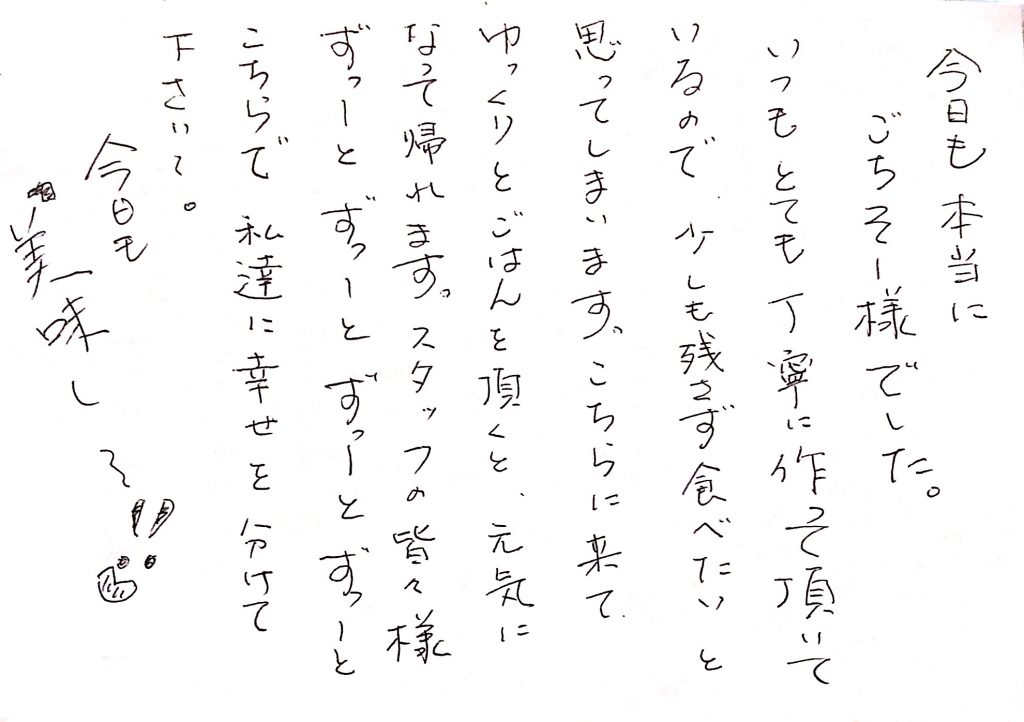 今日も本当に
ごちそー様でした。
いつもとても丁寧に作って頂いて
いるので、少しも残さず食べたいと
思ってしまいます。こちらに来て
ゆっくりとごはんを頂くと、元気に
なって帰れます。スタッフの皆々様
ずっーとずっーとずっーとずっーと
こちらで私達に幸せを分けて
下さい〜。
今日も
美味し〜!!